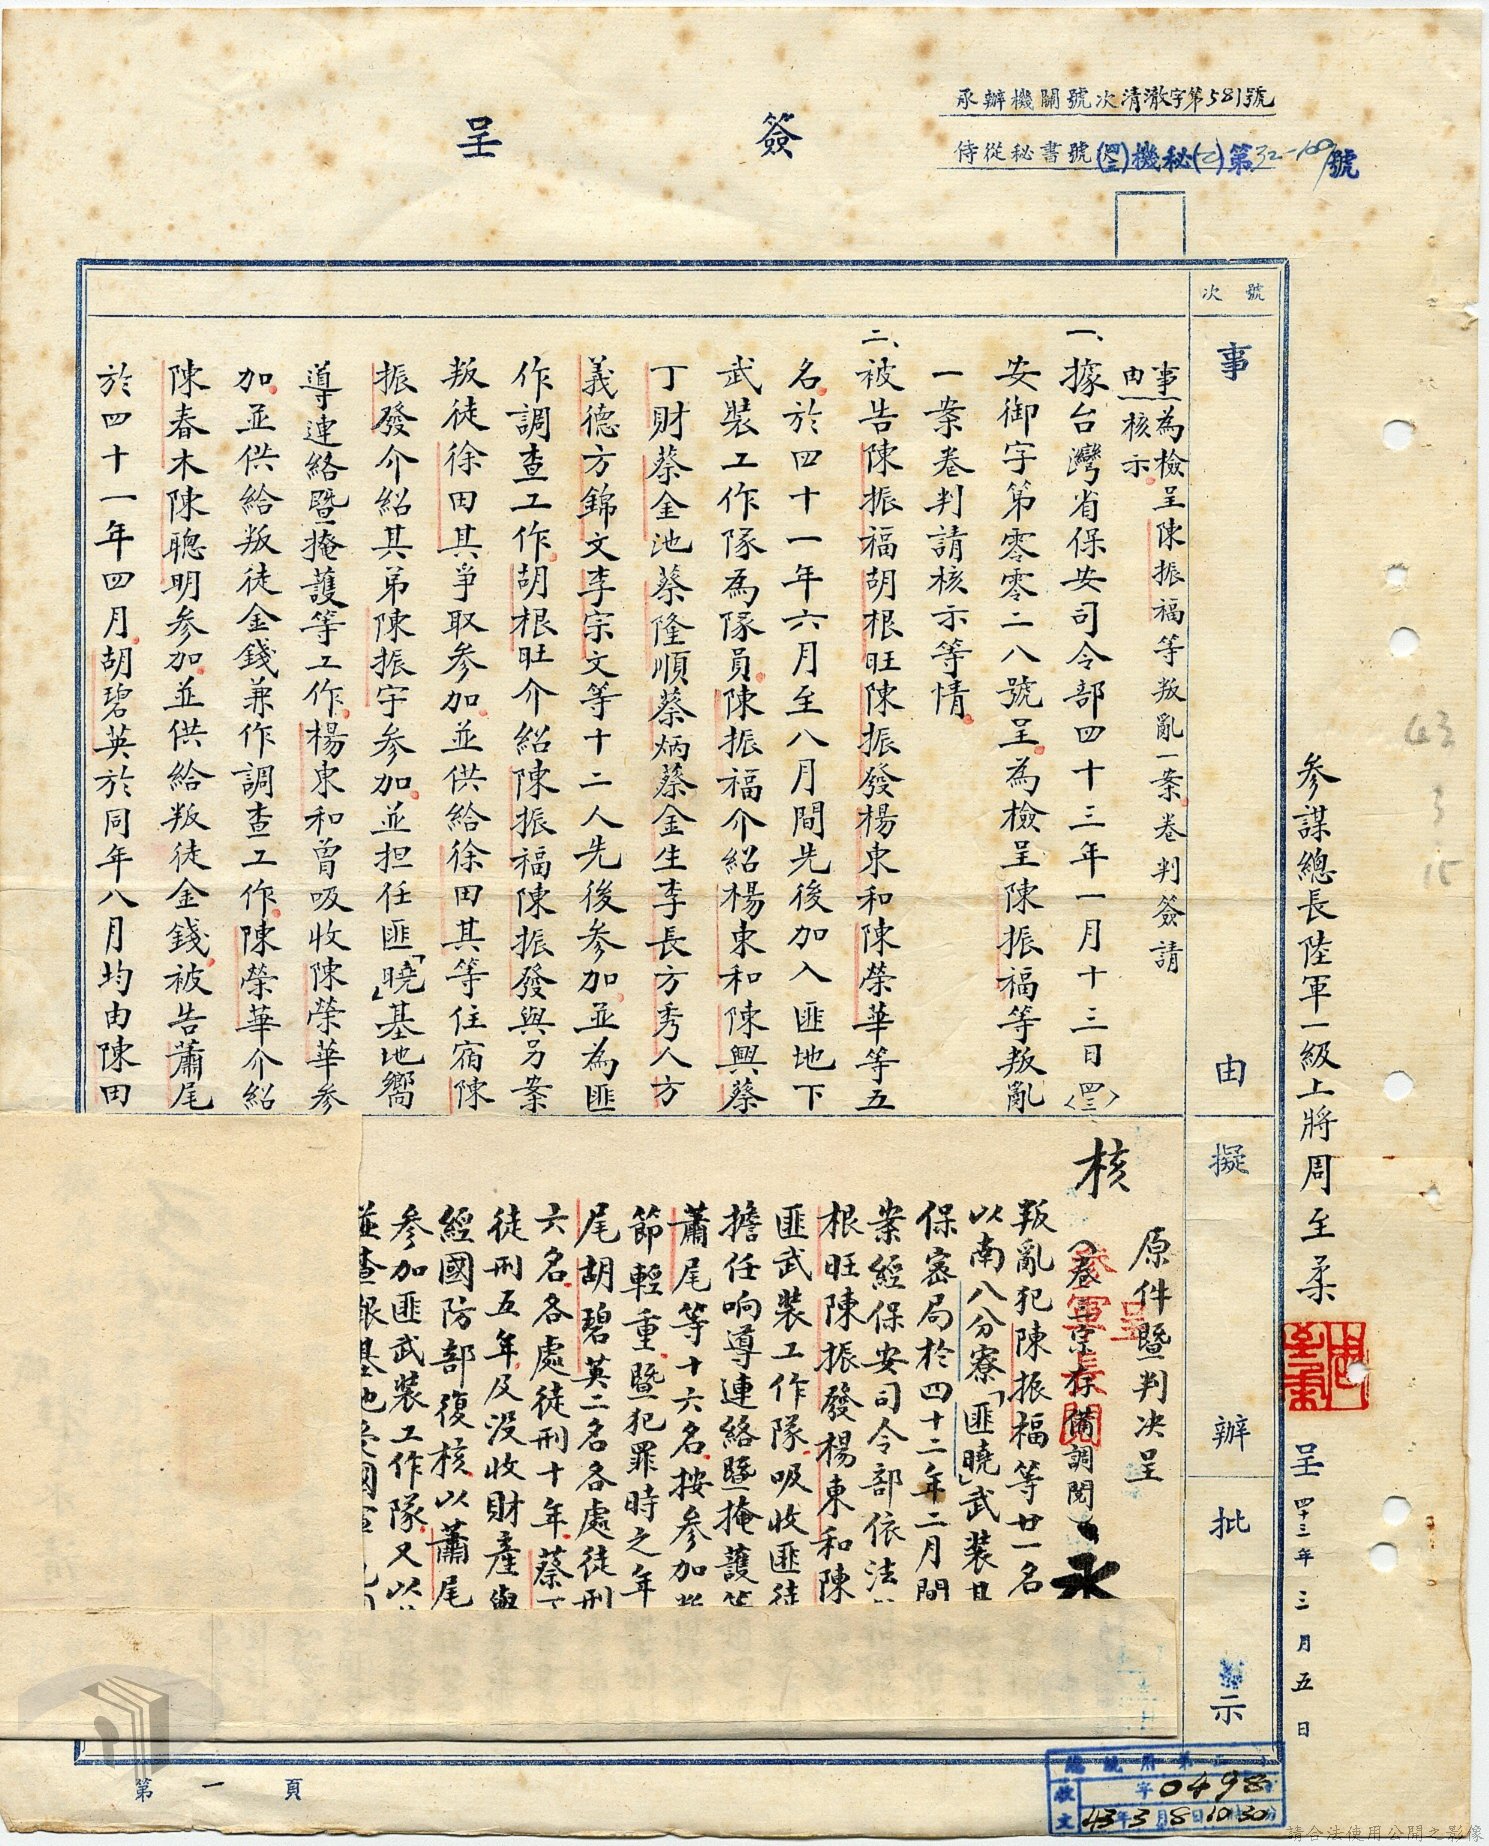 簽呈
承辦機關號次清澈字第581號
侍從秘書號(四三)機秘(乙)第32-169號
參謀總長陸軍一級上將周至柔
呈
四十三年三月五日
號次
事由
擬辦
批示
事由
為檢呈陳振福等叛亂一案卷判簽請
核示。
一、據台灣省保安司令部四十三年一月十三日〈四三〉
安御字第零零二八號呈。為檢呈陳振福等叛亂
一案卷判請核示等情。
二、被告陳振福胡根旺陳振發楊東和陳榮華等五
名。於四十一年六月至八月間先後加入匪地下
武裝工作隊為隊員。陳振福介紹楊東和陳興蔡
丁財蔡金池蔡隆順蔡炳蔡金生李長方秀人方
義德方錦文李宗文等十二人先後參加。並為匪
作調查工作。胡根旺介紹陳振福陳振發與另案
叛徒徐田其爭取參加。並供給徐田其等住宿。陳
振發介紹其弟陳振宇參加。並担任匪「曉」基地嚮
導連絡暨掩護等工作。楊東和曾吸收陳榮華參
加。並供給叛徒金錢兼作調查工作。陳榮華介紹
陳春木陳聰明參加。並供給叛徒金錢。被告蕭尾
於四十一年四月。胡碧英於同年八月均由陳田
核
原件暨判决呈
呈
參軍長閱
(卷三宗存備調閱)
永
叛亂犯陳振福等廿一名
以南八分寮「匪曉」武裝
保密局於四十二年二月間
案經保安司令部依法
根旺陳振發楊東和陳
匪武裝工作隊。吸收匪徒
擔任响導連絡暨掩護等
蕭尾等十六名。按參加
節輕重。暨犯罪時之年
尾胡碧英二名各處徒刑
六名。各處徒刑十年。蔡丁
徒刑五年。及沒收財產
經國防部復核。以蕭尾
參加匪武裝工作隊。又以
並查報基地
43 3 15
第一頁
總統府第
收文
字 0498
43年3月8日10時30分
請合法使用公開之影像